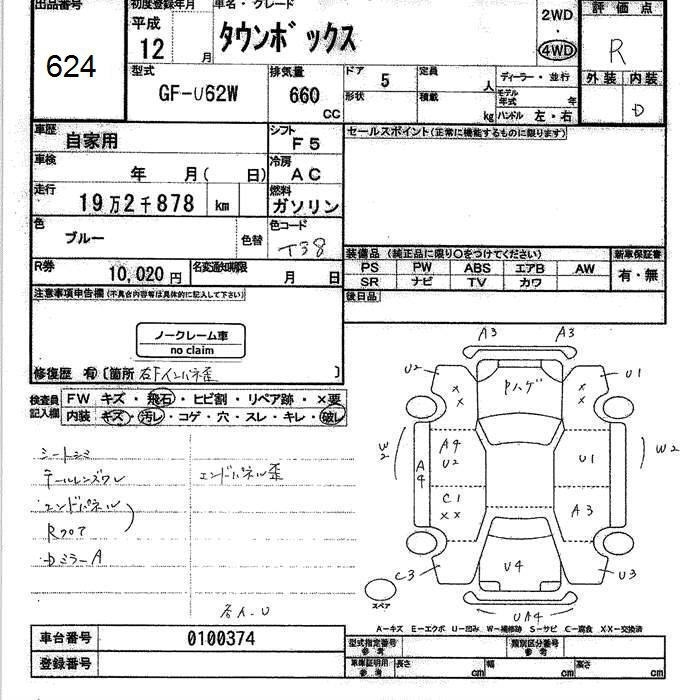 出品番号 初度登録年月 車名・グレード 評価点
624
平成
12 月
タウンボックス
2WD
・
4WD
R
外装 内装
D
型式 排気量 ドア 定員 ディーラー・並行
GF-U62W 660 cc
5 人
形状 積載 kg
モデル年式 年
ハンドル 左・右
車歴 自家用 シフト F5
セールスポイント(正常に機能するものに限ります)
車検 年 月( 日) 冷房 AC
走行 19万2千878 km 燃料 ガソリン
色 ブルー 色替 色コード T38
R券 10,020円 名変通知期限 月 日
装備品 (純正品に限り○をつけてください) 新車保証書
PS PW ABS エアB AW
SR ナビ TV カワ
有・無
後日品
注意事項申告欄(不具合内容等は具体的に記入して下さい)
ノークレーム車
no claim
修復歴 有〔箇所 右Fインパネ歪 〕
検査員記入欄
FW キズ・飛石・ヒビ割・リペア跡・×要
内装 キズ・汚レ・コゲ・穴・スレ・キレ・破レ
シートシミ
テールレンズワレ
エンドパネル
Rフロア
Dミラー A
エンドパネル歪
A3 A3
U2 U1
Pハゲ
× × × ×
W2 A4 A4 U2 U1 W2
C1 ×× A3
C3 U4 U3
スペア
UA4
A-キズ E-エクボ U-凹み W-補修跡 S-サビ C-腐食 XX-交換済
車台番号 0100374
登録番号
型式指定番号 参考 類別区分番号 参考
車庫証明用 参考 長さ cm 幅 cm 高さ cm